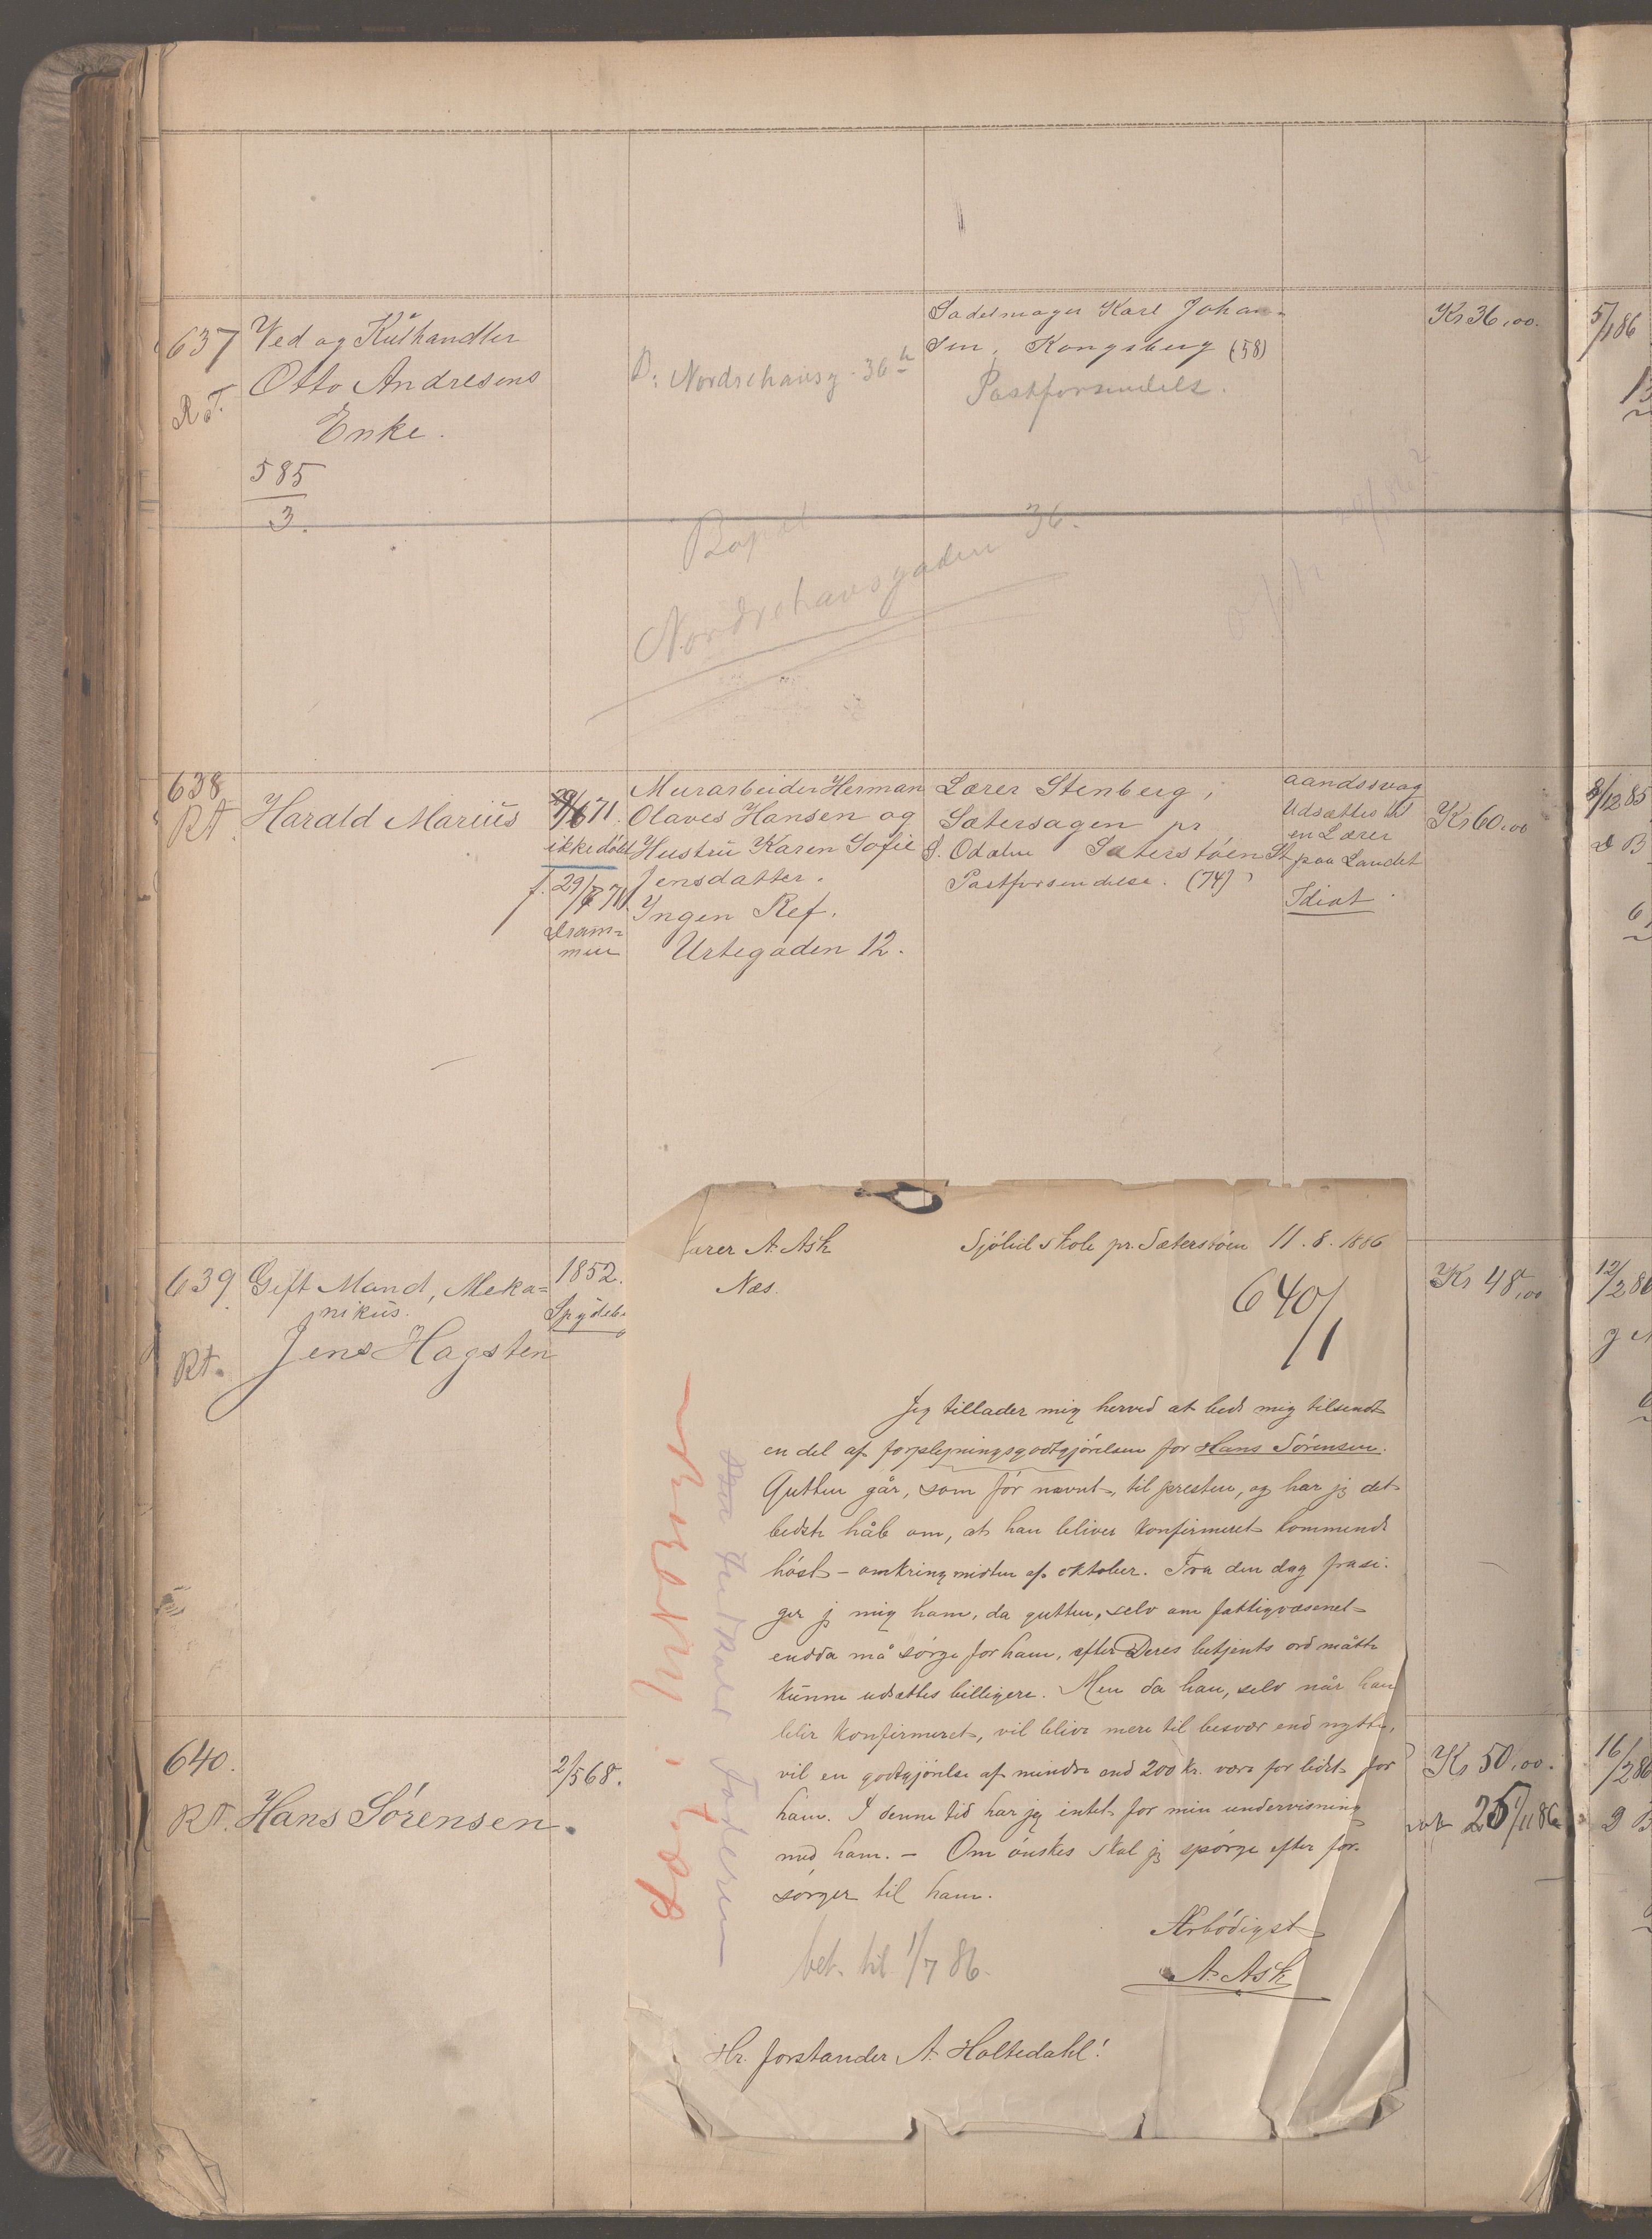 637
R.T.
Ved og Kulhandler
Otto Andresens
Enke.
585
3.
D: Nordrehausg. 36 h
Sadelmager Karl Johan-
sen, Kongsberg (58)
Postforsendelse.
Kr 36,00.
5/1 86
Nordrehausgaden 36.
638
RT.
Harald Marius
29/6 71.
ikke døbt
f. 29/7 71
Dram-
men
Murarbeider Herman
Olaves Hansen og
Hustru Karen Sofie
Jensdatter.
Ingen Ref.
Urtegaden 12.
Lærer Stenberg,
Sætersagen pr
S. Odalen Sæterstøen St
Postforsendelse. (74)
aandssvag
Udsættes til
en Lærer
paa Landet
Idiot
Kr 60,00
2/12 85
639
RT.
Gift Mand, Meka-
nikus.
Jens Hagsten
1852.
Spydeb.
Kr 48,00
12/2 86
640.
RT.
Hans Sørensen.
2/5 68.
Kr 50,00.
25 1/11 86
16/2 86
Lærer A. Ask
Næs.
Sjølid skole pr. Sæterstøen 11.8.1886
640/1
Jeg tillader mig herved at bede mig tilsendt
en del af forplejningsgodtgjørelsen for Hans Sørensen.
Gutten går, som før nævnt, til presten, og har jeg det
bedste håb om, at han bliver konfirmeret kommende
høst – omkring midten af oktober. Fra den dag frasi-
ger jeg mig ham, da gutten, selv om fattigvæsenet
endda må sørge for ham, efter Deres betjents ord måtte
kunne udsættes billigere. Men da han, selv når han
blir konfirmeret, vil blive mere til besvær end nytte,
vil en godtgjørelse af mindre end 200 kr. være for lidet for
ham. I denne tid har jeg intet for min undervisning
med ham. – Om ønskes skal jeg spørge efter for-
sørger til ham.
Ærbødigst
A. Ask
bet. til 1/7 86.
Hr. forstander A. Holtedahl!